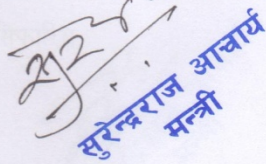 सुरेन्द्रराज आचार्य
मन्त्री